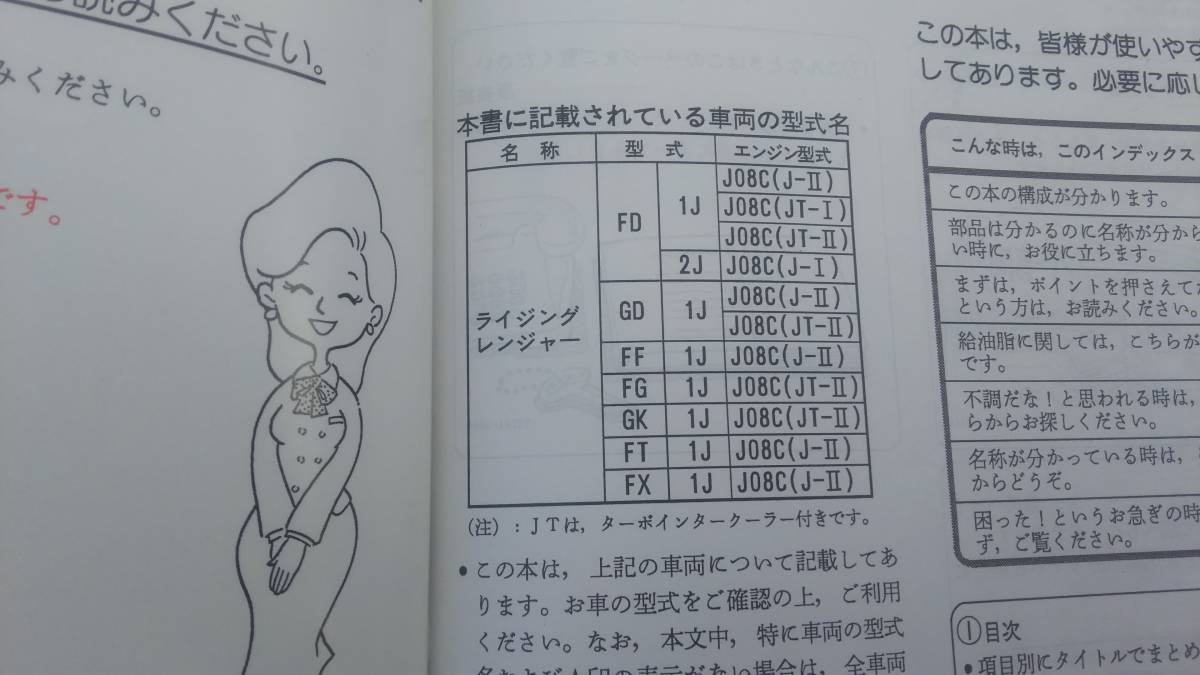 読みください。
みください。
です。
本書に記載されている車両の型式名
名 称 型 式 エンジン型式
ライジング
レンジャー
FD 1J J08C(J-Ⅱ)
J08C(JT-Ⅰ)
J08C(JT-Ⅱ)
2J J08C(J-Ⅰ)
GD 1J J08C(J-Ⅱ)
J08C(JT-Ⅱ)
FF 1J J08C(J-Ⅱ)
FG 1J J08C(JT-Ⅱ)
GK 1J J08C(JT-Ⅱ)
FT 1J J08C(J-Ⅱ)
FX 1J J08C(J-Ⅱ)
(注):JTは,ターボインタークーラー付きです。
•この本は,上記の車両について記載してあ
ります。お車の型式をご確認の上,ご利用
ください。なお,本文中,特に車両の型式
名および 印の表示がない場合は,全車両
この本は,皆様が使いやす
してあります。必要に応じ
こんな時は,このインデックス
この本の構成が分かります。
部品は分かるのに名称が分から
い時に,お役に立ちます。
まずは,ポイントを押さえて
という方は,お読みください。
給油脂に関しては,こちらが
です。
不調だな!と思われる時は,
らからお探しください。
名称が分かっている時は,
からどうぞ。
困った!というお急ぎの時
ず,ご覧ください。
①目次
•項目別にタイトルでまとめ